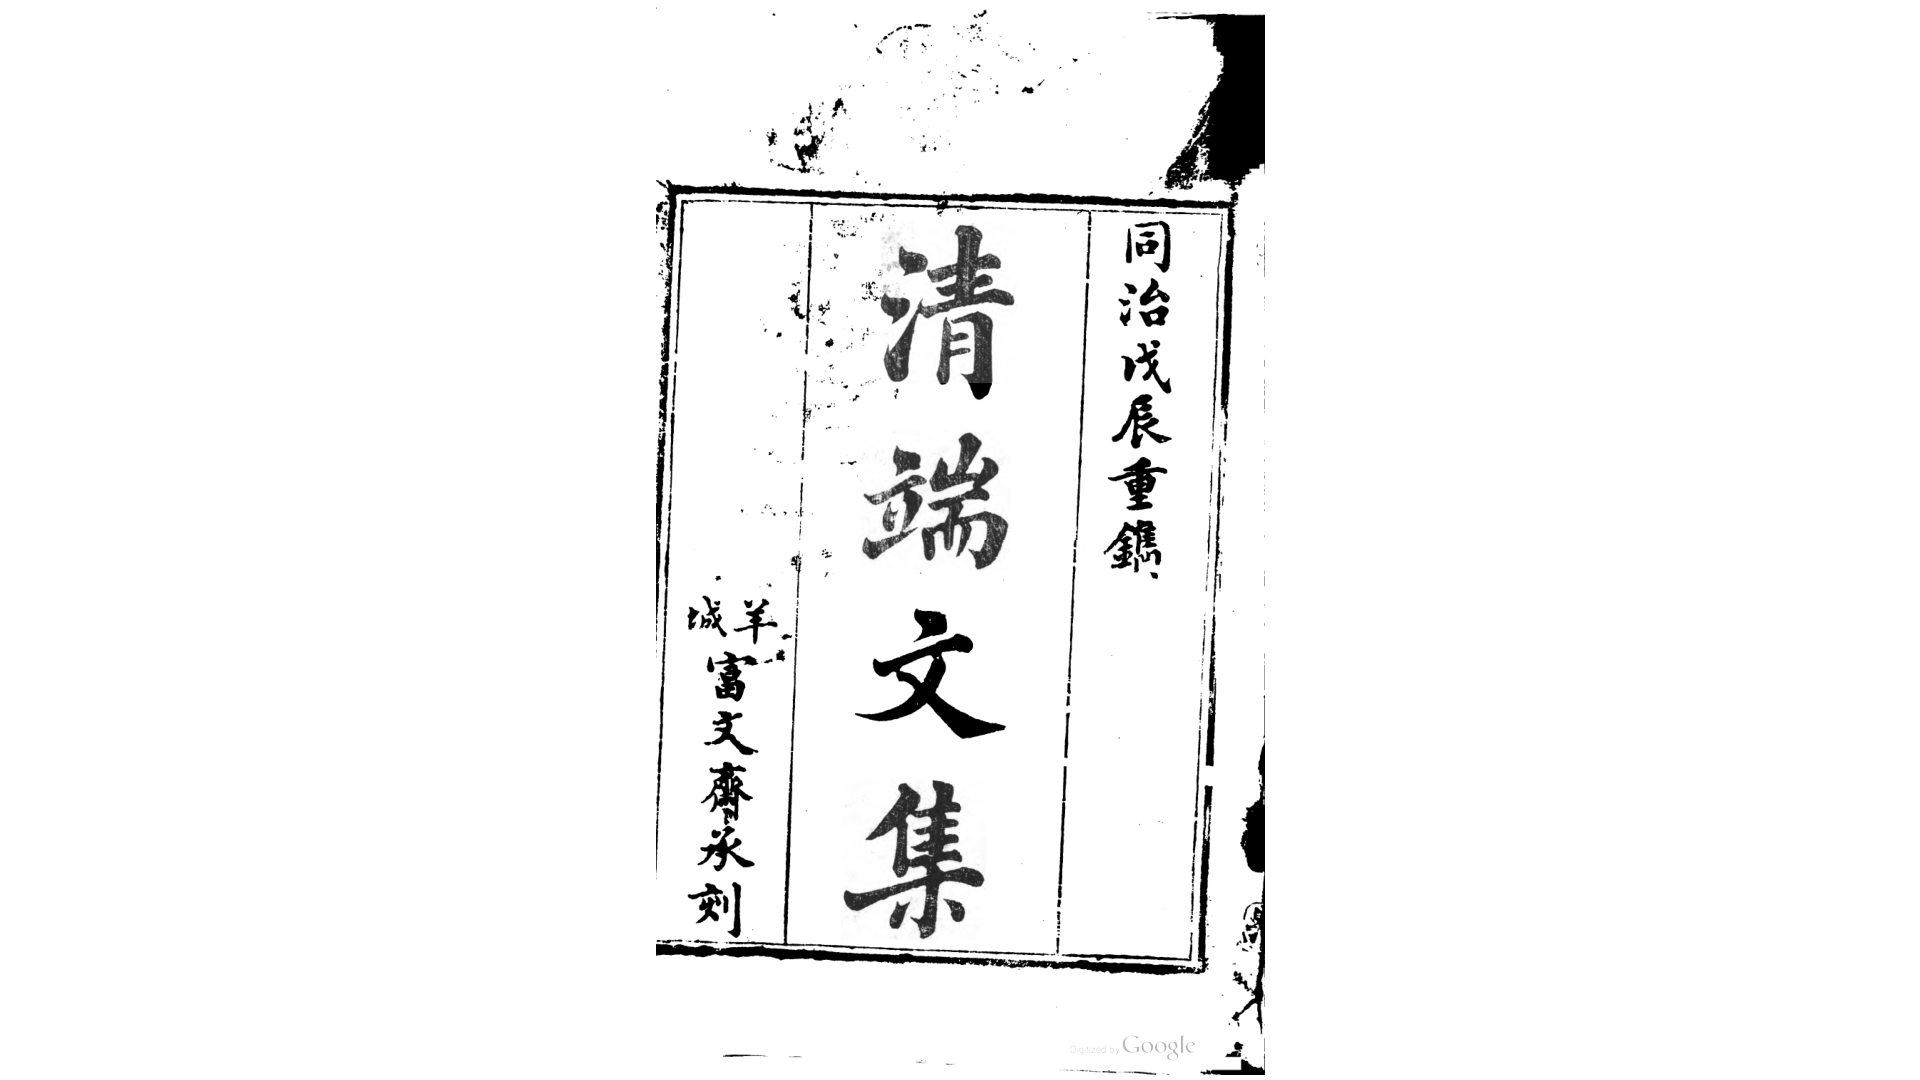 同治戊辰重鐫
清端文集
羊城富文齋承刻
Digitized by Google